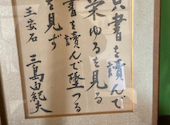 只書を読んで
栄ゆるを見る
書を読んで墜つる
を見ず
王安石
三島由紀夫